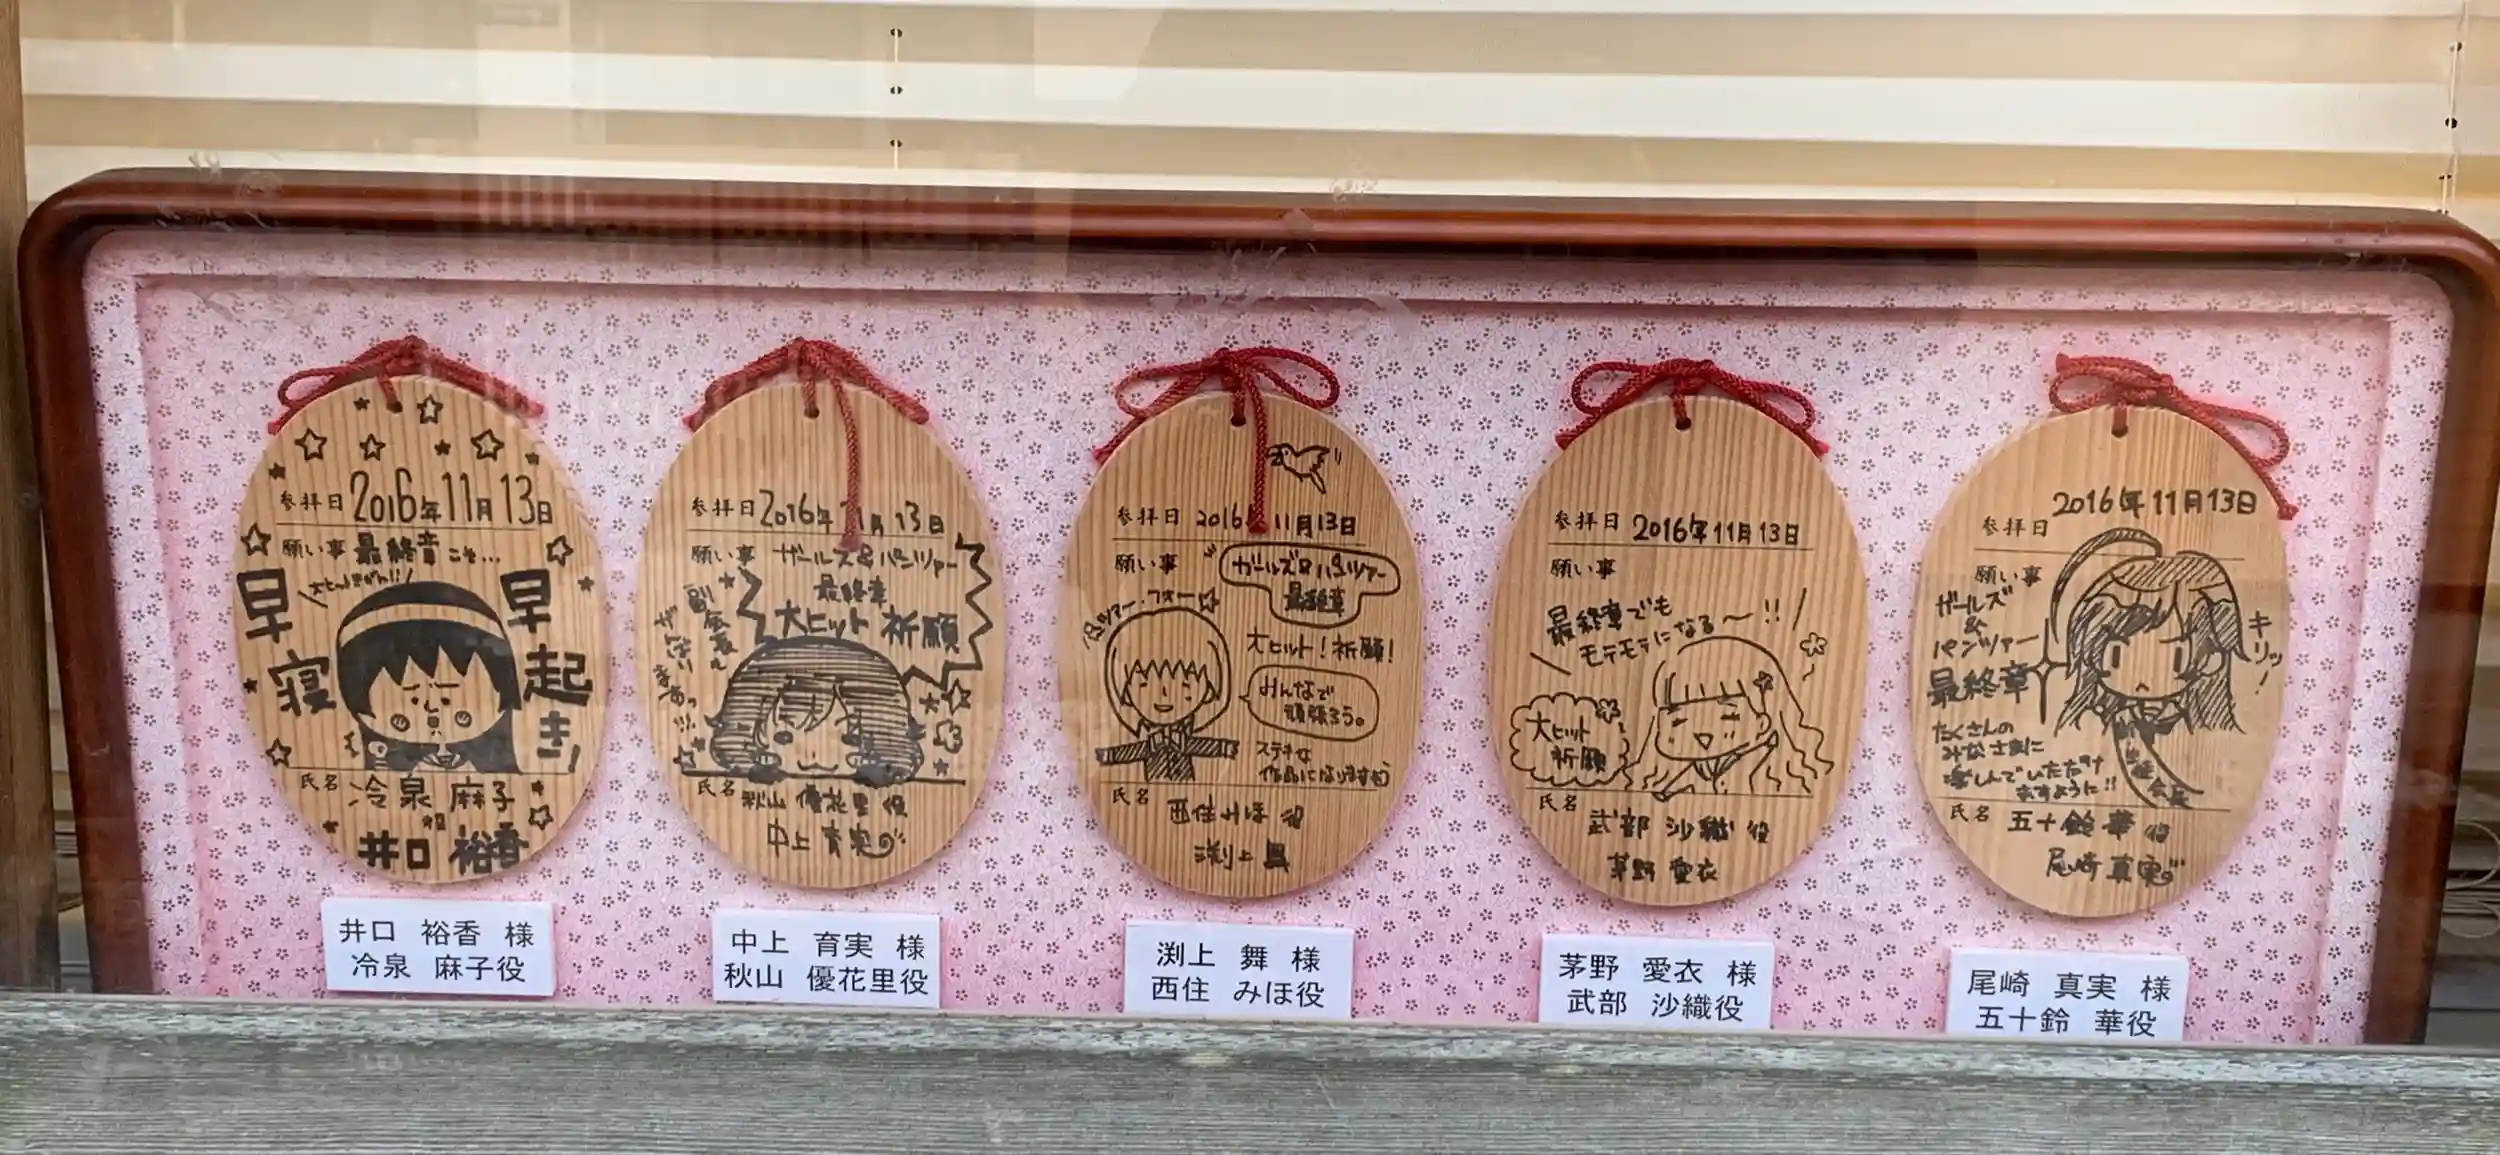 参拝日 2016年11月13日
願い事 最終章こそ…
大ヒットきがん!!
早寝
早起き!
氏名 冷泉 麻子
役
井口 裕香
井口 裕香 様
冷泉 麻子役
参拝日 2016年11月13日
願い事 ガールズ&パンツァー
最終章
大ヒット 祈願
副会長も
がんばり
まあっ!!!
氏名 秋山 優花里 役
中上 育実
中上 育実 様
秋山 優花里役
参拝日 2016 11月13日
願い事
ガールズ&パンツァー
最終章
パンツァー・フォー
大ヒット!祈願!
みんなで
頑張ろう。
ステキな
作品になりますよう
氏名
西住みほ 役
渕上 舞
渕上 舞 様
西住 みほ役
参拝日 2016年11月13日
願い事
最終章でも
モテモテになる〜!!
大ヒット
祈願
氏名
武部 沙織 役
茅野 愛衣
茅野 愛衣 様
武部 沙織役
参拝日 2016年11月13日
願い事
ガールズ
&
パンツァー
最終章
キリッ!
たくさんの
みなさまに
楽しんでいただけ
ますように!!
生徒
会長
氏名 五十鈴 華 役
尾崎 真実
尾崎 真実 様
五十鈴 華役